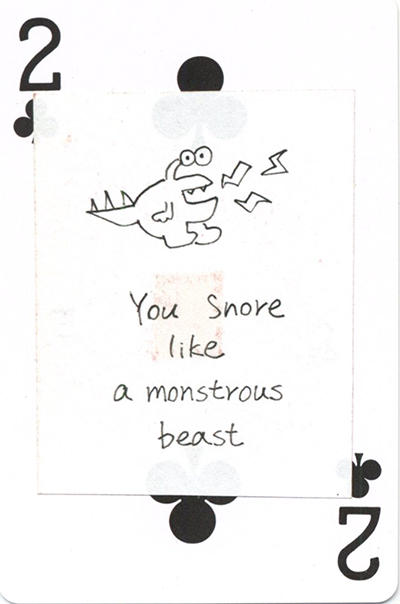 2
You Snore
like
a monstrous
beast
2